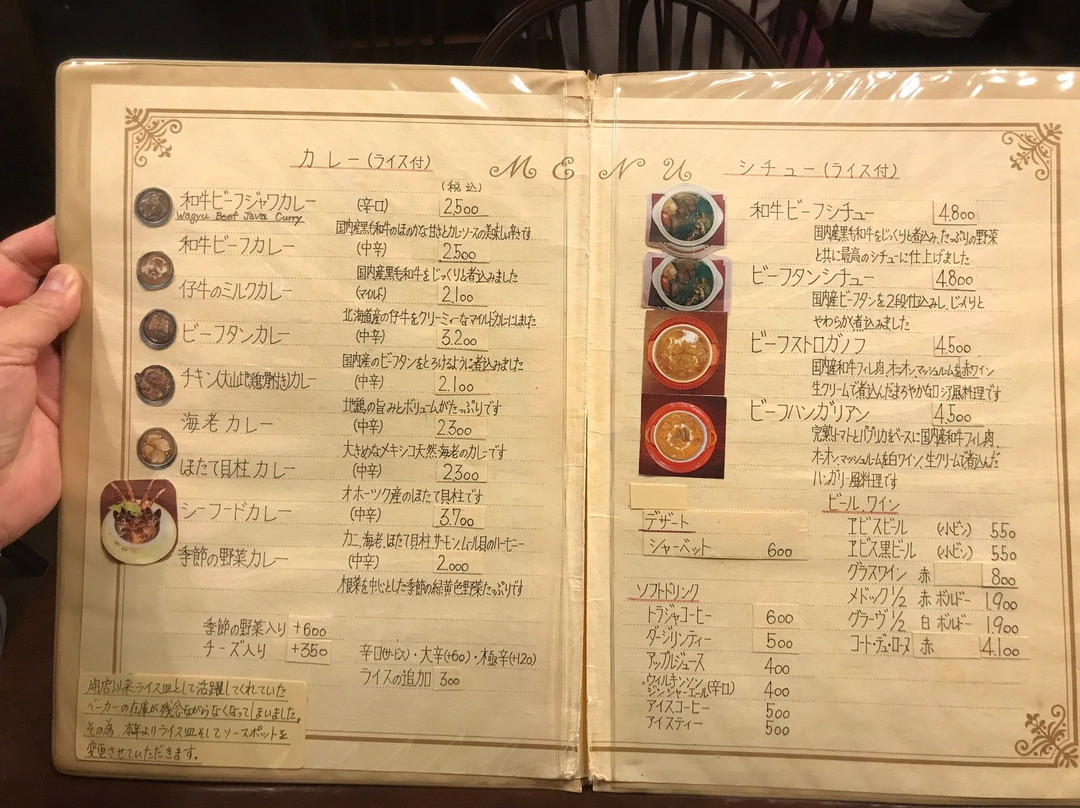 MENU
カレー(ライス付)
(税込)
和牛ビーフジャワカレー (辛口) 2.500
Wagyu Beef Java Curry
国内産黒毛和牛のほのかな甘さとカレーソースの美味しい辛さです
和牛ビーフカレー (中辛) 2.500
国内産黒毛和牛をじっくりと煮込みました
仔牛のミルクカレー (マイルド) 2.100
北海道産の仔牛をクリーミィーなマイルドカレーにしました
ビーフタンカレー (中辛) 3.200
国内産のビーフタンをとろけるように煮込みました
チキン(大山地鶏骨付き)カレー (中辛) 2.100
地鶏の旨みとボリュームがたっぷりです
海老カレー (中辛) 2.300
大きめなメキシコ天然海老のカレーです
ほたて貝柱カレー (中辛) 2.300
オホーツク産のほたて貝柱です
シーフードカレー (中辛) 3.700
カニ、海老、ほたて貝柱、サーモン、ムール貝のハーモニー
季節の野菜カレー (中辛) 2.000
根菜を中心とした季節の緑黄色野菜たっぷりです
季節の野菜入り +600
チーズ入り +350
辛口(サービス)・大辛(+60)・極辛(+120)
ライスの追加 300
開店以来ライス皿として活躍してくれていた
ベーカーの在庫が残念ながらなくなってしまいました。
その為、本年よりライス皿そしてソースポットを
変更させていただきます。
シチュー(ライス付)
和牛ビーフシチュー 4.800
国内産黒毛和牛をじっくりと煮込み、たっぷりの野菜
と共に最高のシチューに仕上げました
ビーフタンシチュー 4.800
国内産ビーフタンを2段仕込みし、じっくりと
やわらかく煮込みました
ビーフストロガノフ 4.500
国内産和牛フィレ肉、オーオン、マッシュルームを赤ワイン
生クリームで煮込んだまろやかなロシア風料理です
ビーフハンガリアン 4.500
完熟トマトとパプリカをベースに国内産和牛フィレ肉、
オーオン、マッシュルームを白ワイン、生クリームで煮込んだ
ハンガリー風料理です
デザート
シャーベット 600
ソフトドリンク
トラジャコーヒー 600
ダージリンティー 500
アップルジュース 400
ウィルキンソン
ジンジャーエール(辛口) 400
アイスコーヒー 500
アイスティー 500
ビール、ワイン
ヱビスビール (小ビン) 550
ヱビス黒ビール (小ビン) 550
グラスワイン 赤 800
メドック1/2 赤 ボルドー 1.900
グラーヴ1/2 白 ボルドー 1.900
コート・デュ・ローヌ 赤 4.100